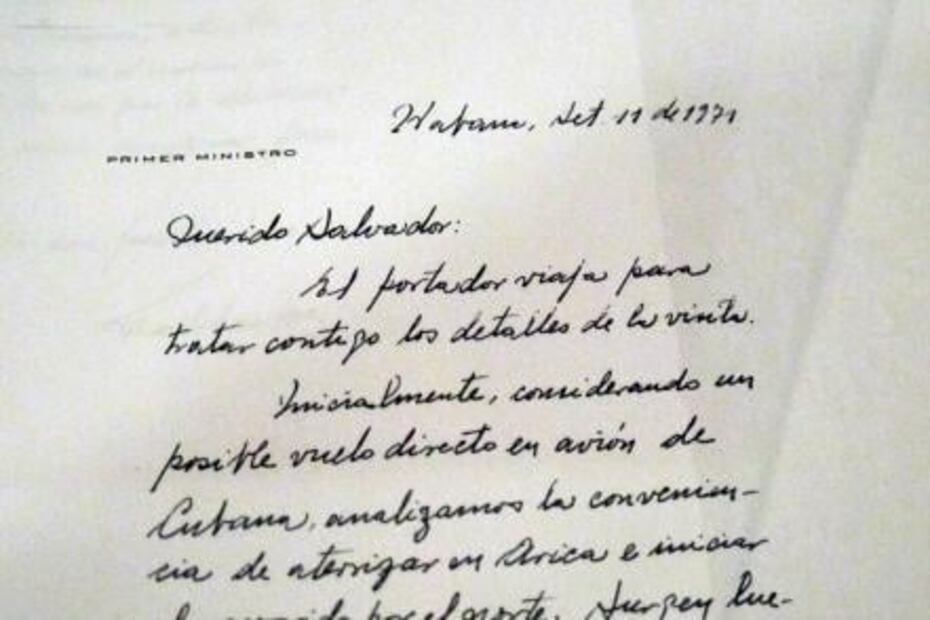 Habana, Set. 11 de 1971
PRIMER MINISTRO
Querido Salvador:
El portador viaja para
tratar contigo los detalles de la visita.
Inicialmente, considerando un
posible vuelo directo en avión de
Cubana, analizamos la convenien-
cia de aterrizar en Arica e iniciar
el recorrido por el norte. Surgen lue-